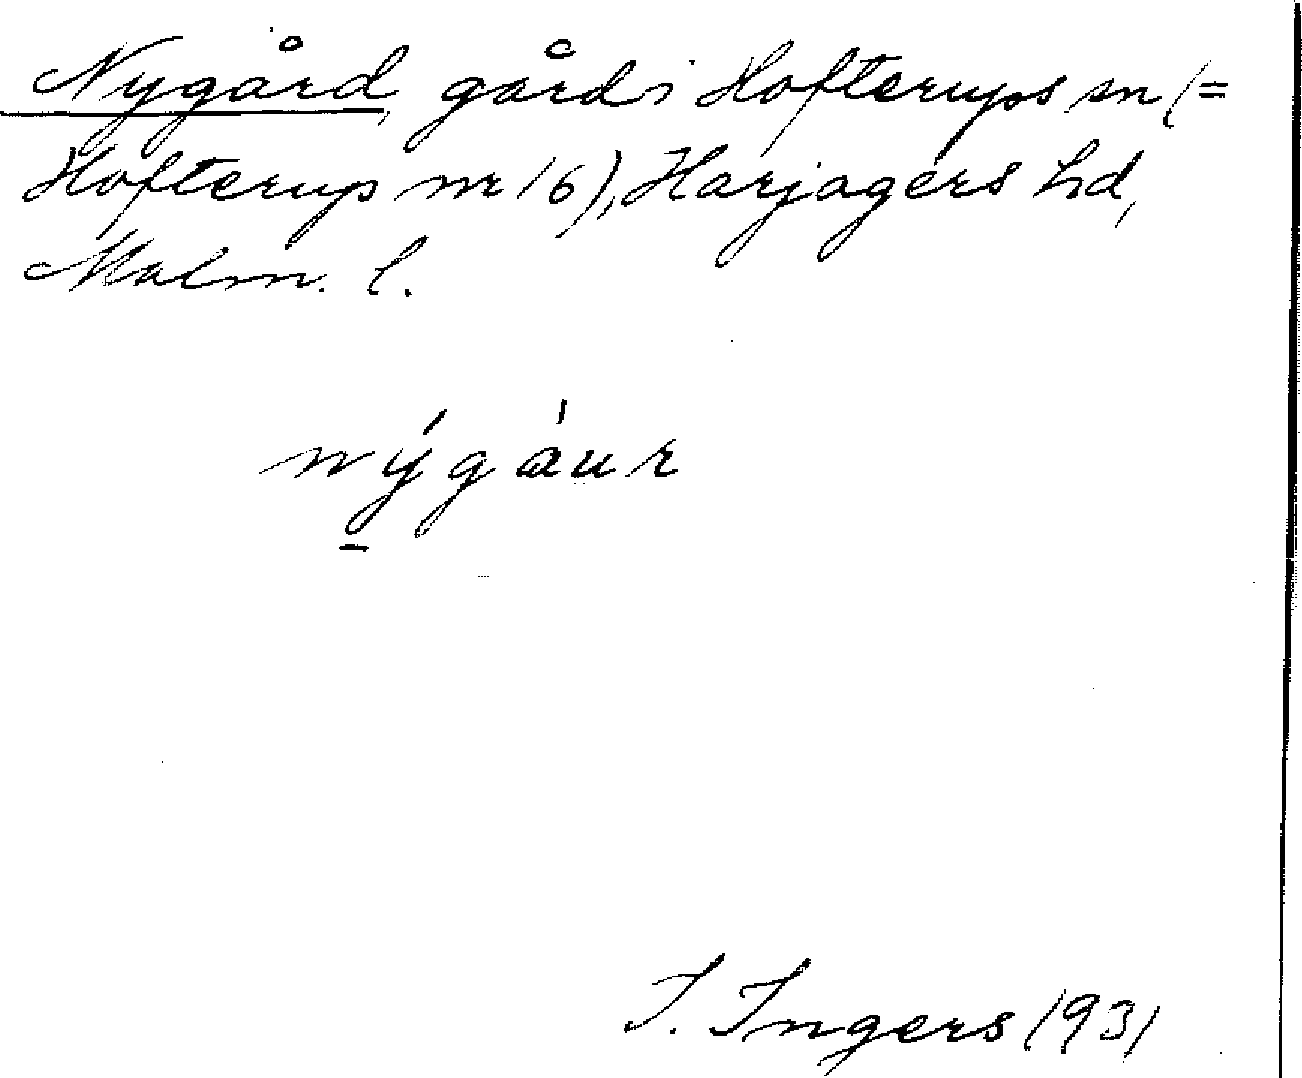 Nygård, gård i Hofterups sn (=
Hofterup nr 16), Harjagers hd,
Malm. l.
nýgàur
I. Ingers 1931